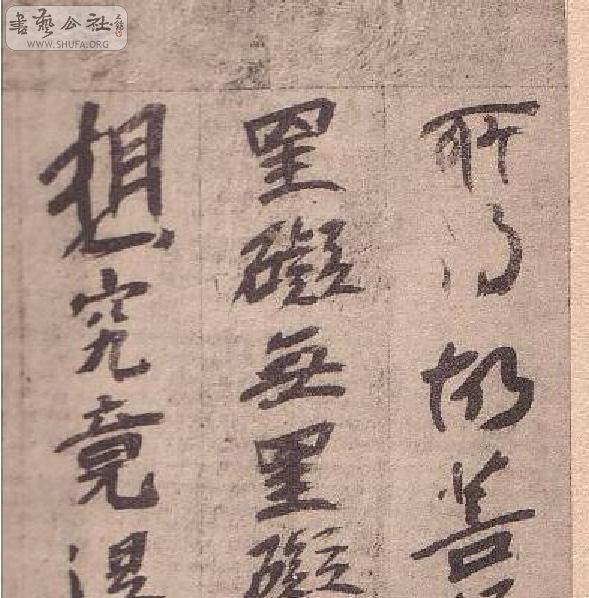 書藝公社
WWW.SHUFA.ORG
所得故菩
罣礙無罣礙
想究竟涅